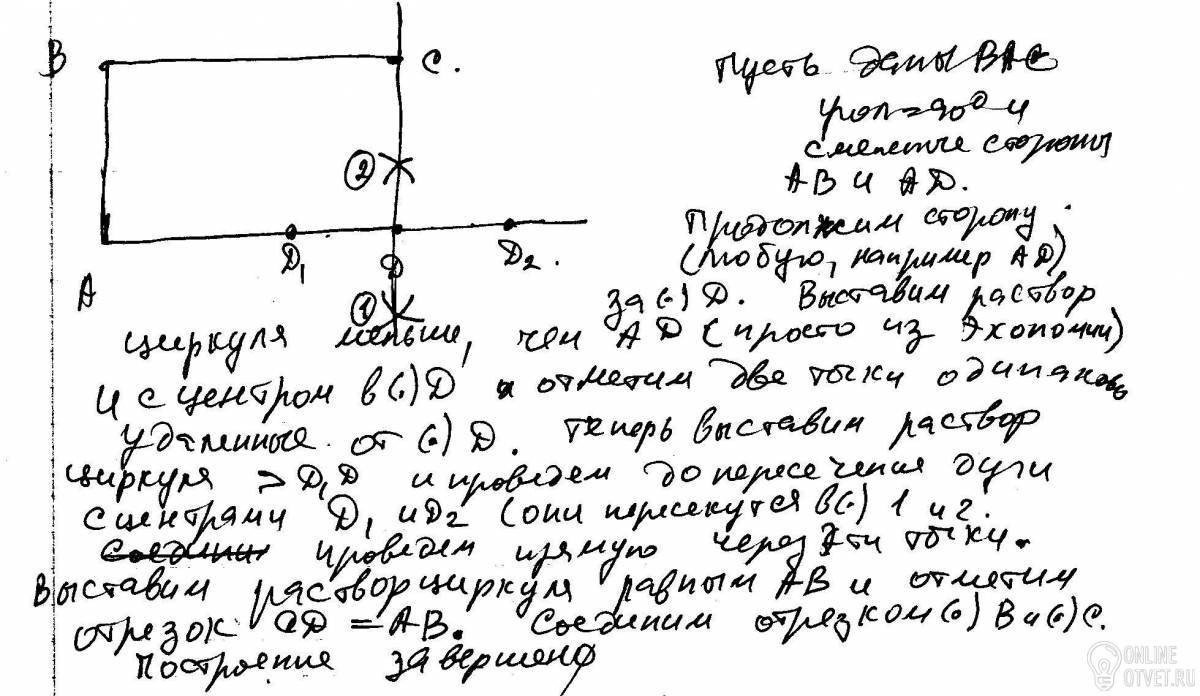 B
C.
②
D₁
D
D₂.
A
①
Пусть даны BAC
угол=90° и
смежные стороны
AB и AD.
Продолжим сторону
(любую, например AD)
за (.) D. Выставим раствор
циркуля меньше, чем AD (просто из экономии)
и с центром в (.) D и отметим две точки одинаково
удаленные от (.) D. Теперь выставим раствор
циркуля > D₁D и проведем до пересечения дуги
с центрами D₁ и D₂ (они пересекутся в (.) 1 и 2.
проведем прямую через эти точки.
Выставим раствор циркуля равным AB и отметим
отрезок CD = AB. Соединим отрезком (.) B и (.) C.
Построение завершено
ONLINE
OTVET.RU